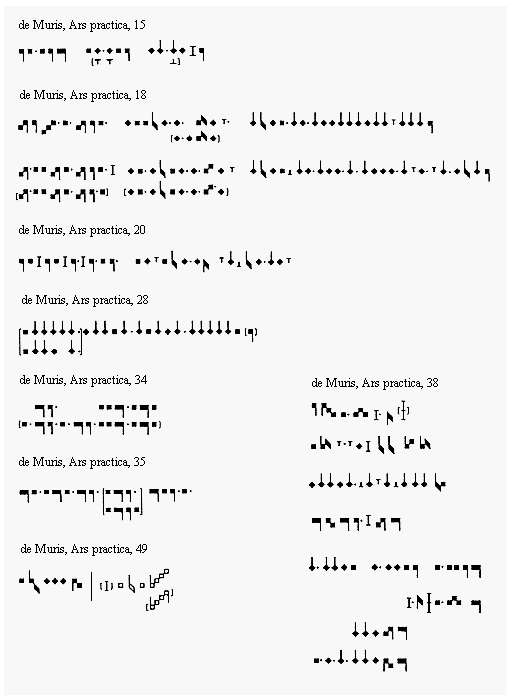 de Muris, Ars practica, 15
de Muris, Ars practica, 18
de Muris, Ars practica, 20
de Muris, Ars practica, 28
de Muris, Ars practica, 34
de Muris, Ars practica, 38
de Muris, Ars practica, 35
de Muris, Ars practica, 49